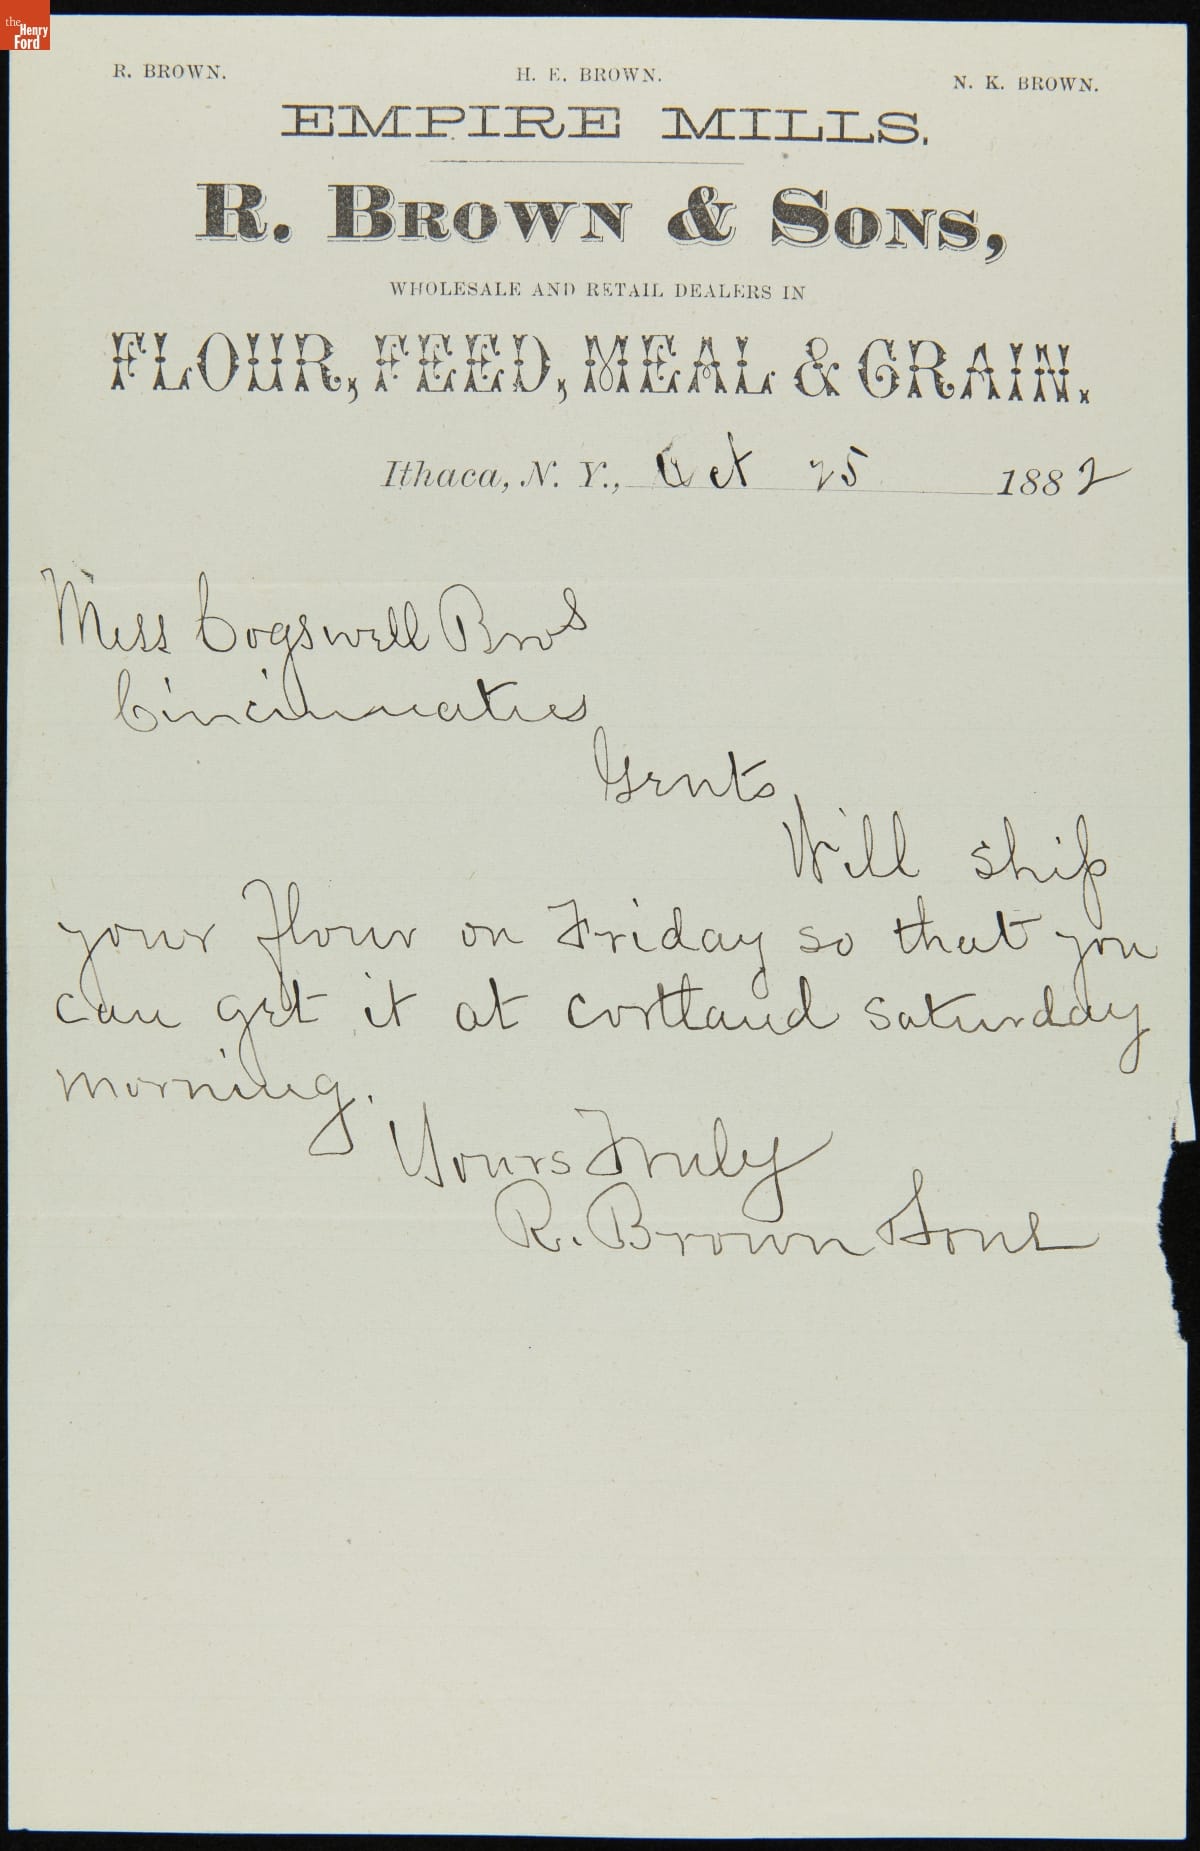 the Henry Ford
R. BROWN. H. E. BROWN. N. K. BROWN.
EMPIRE MILLS.
R. BROWN & SONS,
WHOLESALE AND RETAIL DEALERS IN
FLOUR, FEED, MEAL & GRAIN.
Ithaca, N. Y., Oct 25 1882
Mess Cogswell Bros
Cincinnatus
Gents
Will ship
your flour on Friday so that you
can get it at Cortland Saturday
morning.
Yours Truly
R. Brown Sons